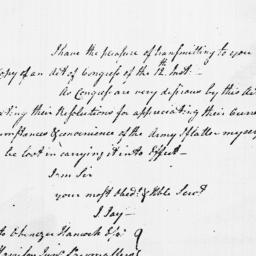 I have the pleasure of transmitting to you
Copy of an Act of Congress of the 12th Inst.—
As Congress are very desirous by this Act
their Resolutions for appreciating their Curre
& convenience of the Army I flatter myself
be lost in carrying it into Effect—
I am Sir
your most Obedt. & Hble Servt
J. Jay—
to Ebenezer Hancock Esqr
Junr. Paymasters